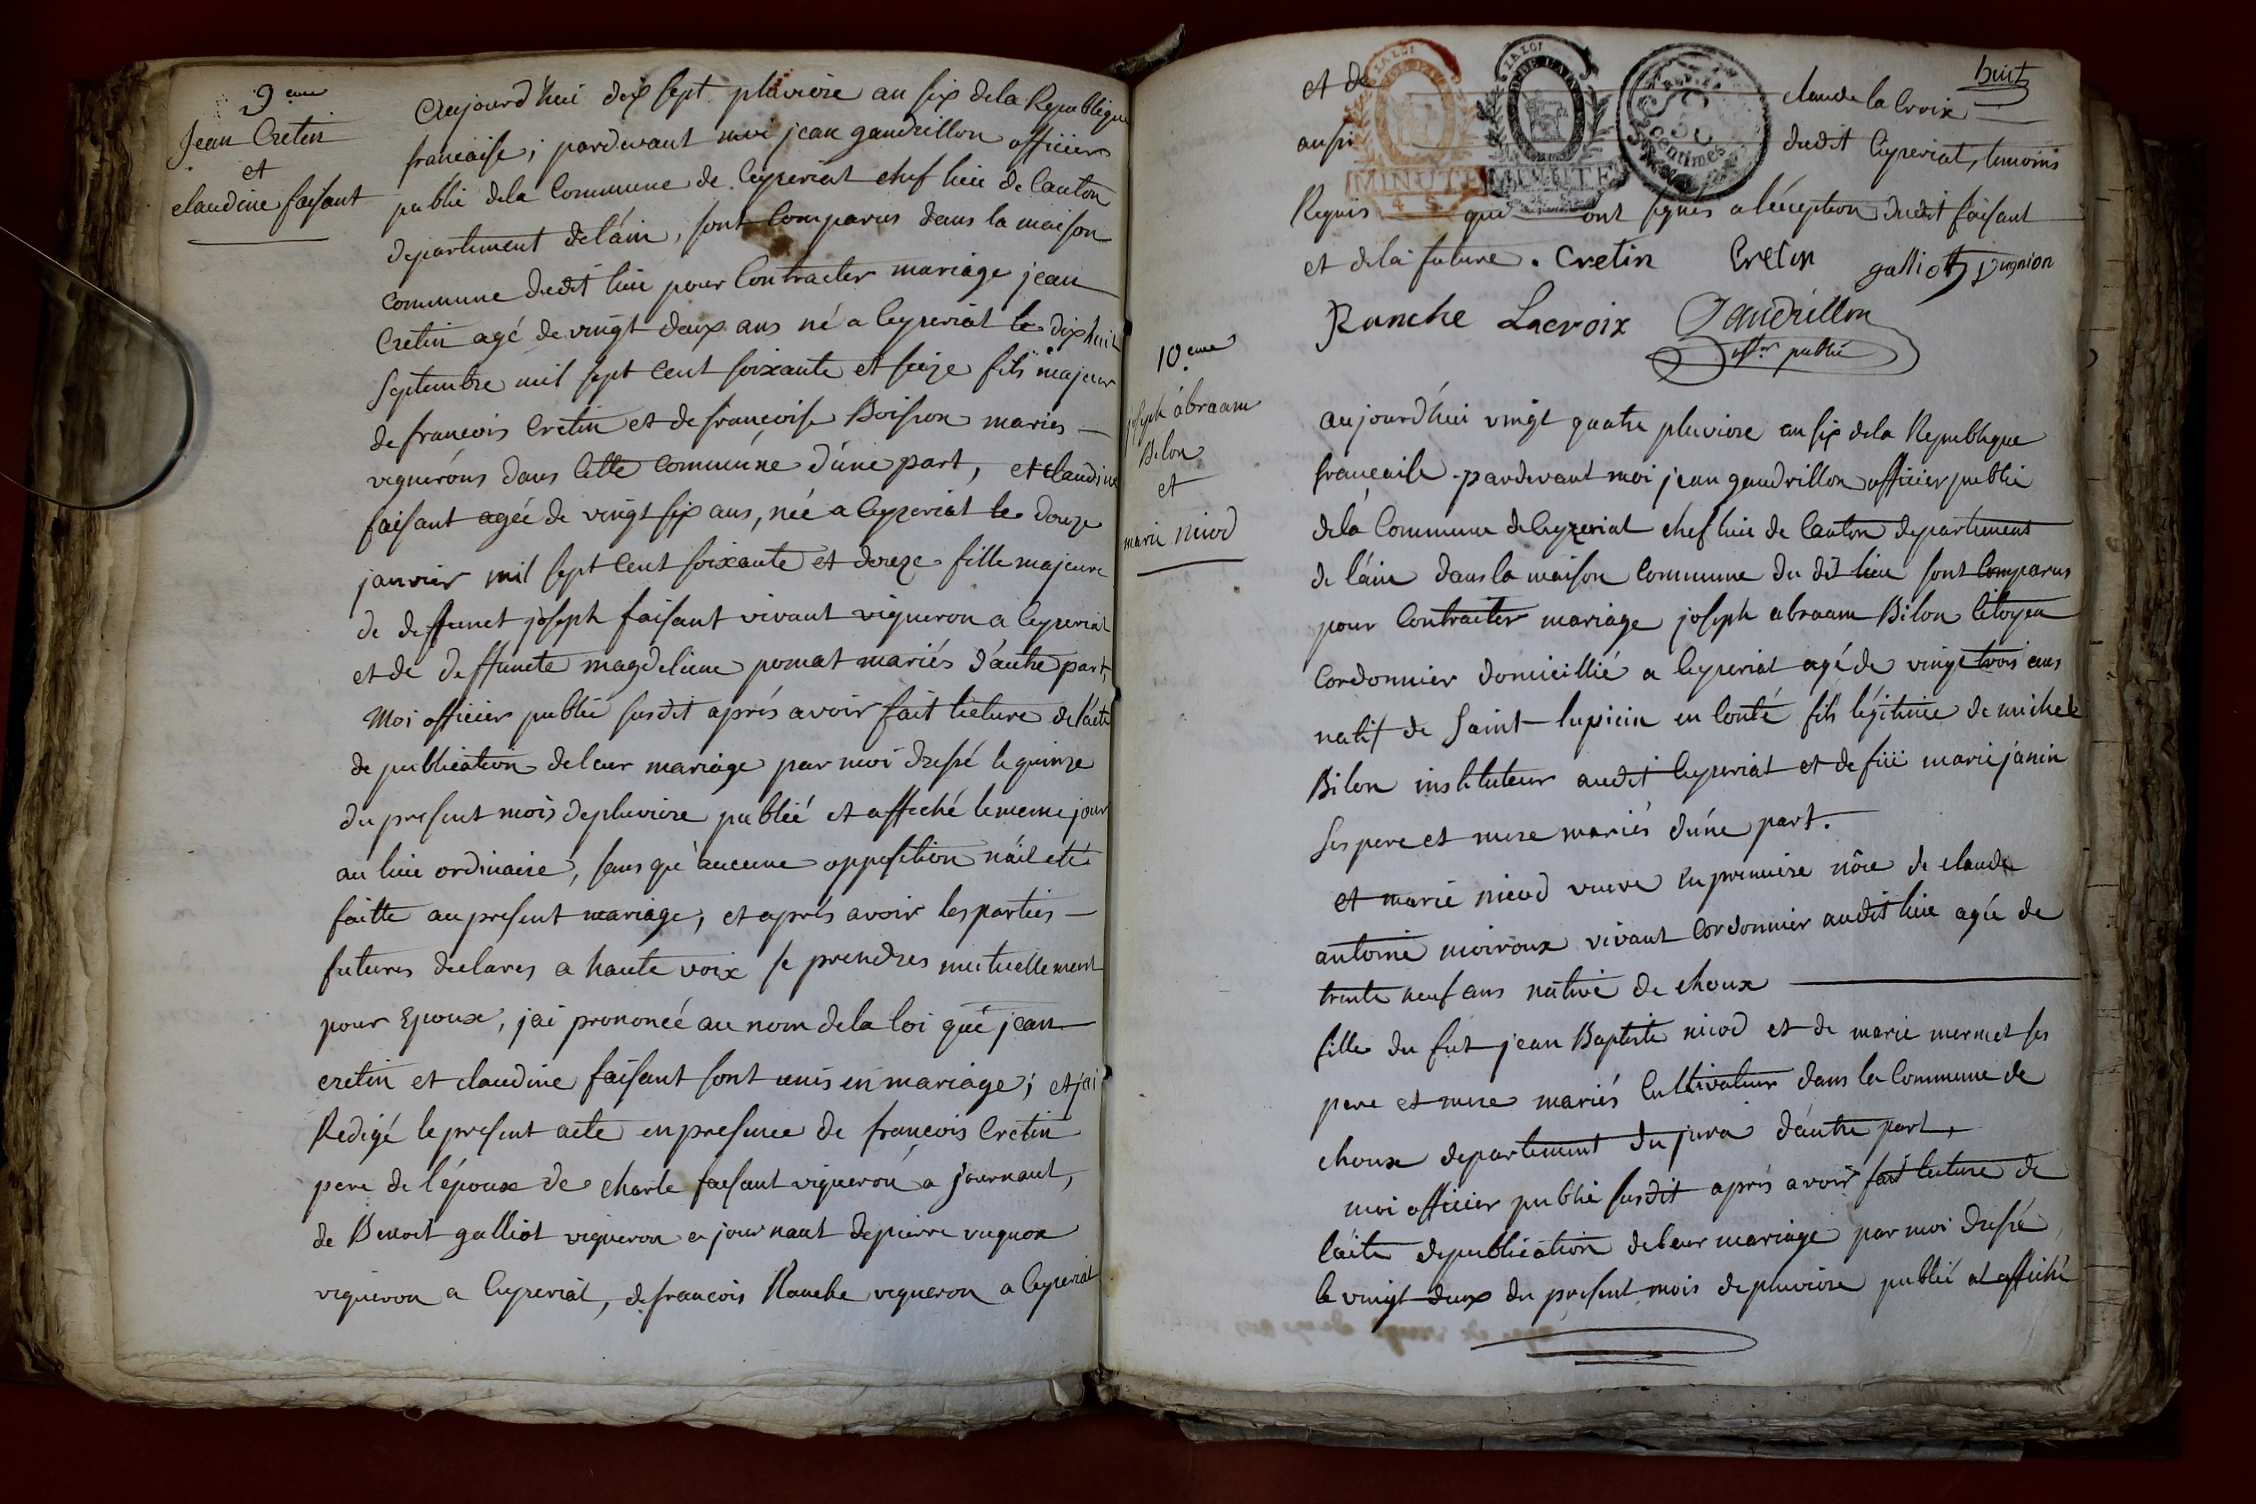 9.eme
Jean Cretin
et
claudine faisant
Aujourd'hui dix sept pluviose an six dela Republique
francaise; pardevant moi jean gaudrillon officier
public dela Commune de Ceyzeriat chef lieu de Canton
departement del'ain, sont Comparus dans la maison
commune dudit lieu pour Contracter mariage jean
Cretin agé de vingt deux ans né a Ceyzeriat le dix huit
Septembre mil sept Cent soixante et seize fils majeur
de francois Cretin et de françoise Boisson mariés —
vignerons dans Cette Commune d'une part, et claudine
faisant agée de vingt six ans, née a Ceyzeriat le douze
janvier mil sept Cent soixante et douze fille majeure
de deffunct joseph faisant vivant vigneron a Ceyzeriat
et de deffuncte magdeleine pomat mariés d'autre part,
Moi officier public susdit aprés avoir fait lecture de l'acte
de publication deleur mariage par moi dressé le quinze
du present mois depluviose publié et affiché lememe jour
au lieu ordinaire, sans qu'aucune opposition n'ait eté
faitte au present mariage, et aprés avoir les parties —
futures declarés a haute voix se prendres mutuellement
pour Epoux, j'ai prononcé au nom dela loi que jean
cretin et claudine faisant sont unis en mariage; et j'ai
Redigé le present acte en presence de francois Cretin
pere de l'époux de Charle faisant vigneron a journant,
de Benoit galliot vigneron a journant de pierre vugnon
vigneron a Ceyzeriat, de francois Ranche vigneron a Ceyzeriat
huit
et de claude la Croix —
aussi dudit Ceyzeriat, temoins
Requis que ont signés a l'éxception dudit faisant
et dela future. Cretin Cretin galliot p vugnion
Ranche Lacroix Gaudrillon
offer public
LA LOI
LA LOI
MINUTE
MINUTE
50
centimes
10.eme
joseph abraam
Bilon
et
marie nicod
aujourd'hui vingt quatre pluviose an six dela Republique
francaise pardevant moi jean gaudrillon officier public
dela Commune de Ceyzeriat chef lieu de Canton departement
de l'ain dans la maison Commune du dit lieu sont Comparus
pour Contracter mariage joseph abraam Bilon Citoyen
Cordonnier domicillié a Ceyzeriat agé de vingt trois ans
natif de Saint lupicin en Conté fils légitime de michel
Bilon instituteur audit Ceyzeriat et de marie janin
ses pere et mere mariés d'une part.
et marie nicod veuve en premiere nôce de claude
antoine moiroux vivant Cordonnier audit lieu agée de
trente neuf ans native de choux
fille du fut jean Baptiste nicod et de marie mermet ses
pere et mere mariés Cultivateur dans la Commune de
choux departement du jura d'autre part,
moi officier public susdit aprés avoir fait lecture de
l'acte depublication deleur mariage par moi dressé
le vingt deux du present mois depluviose publié et affiché